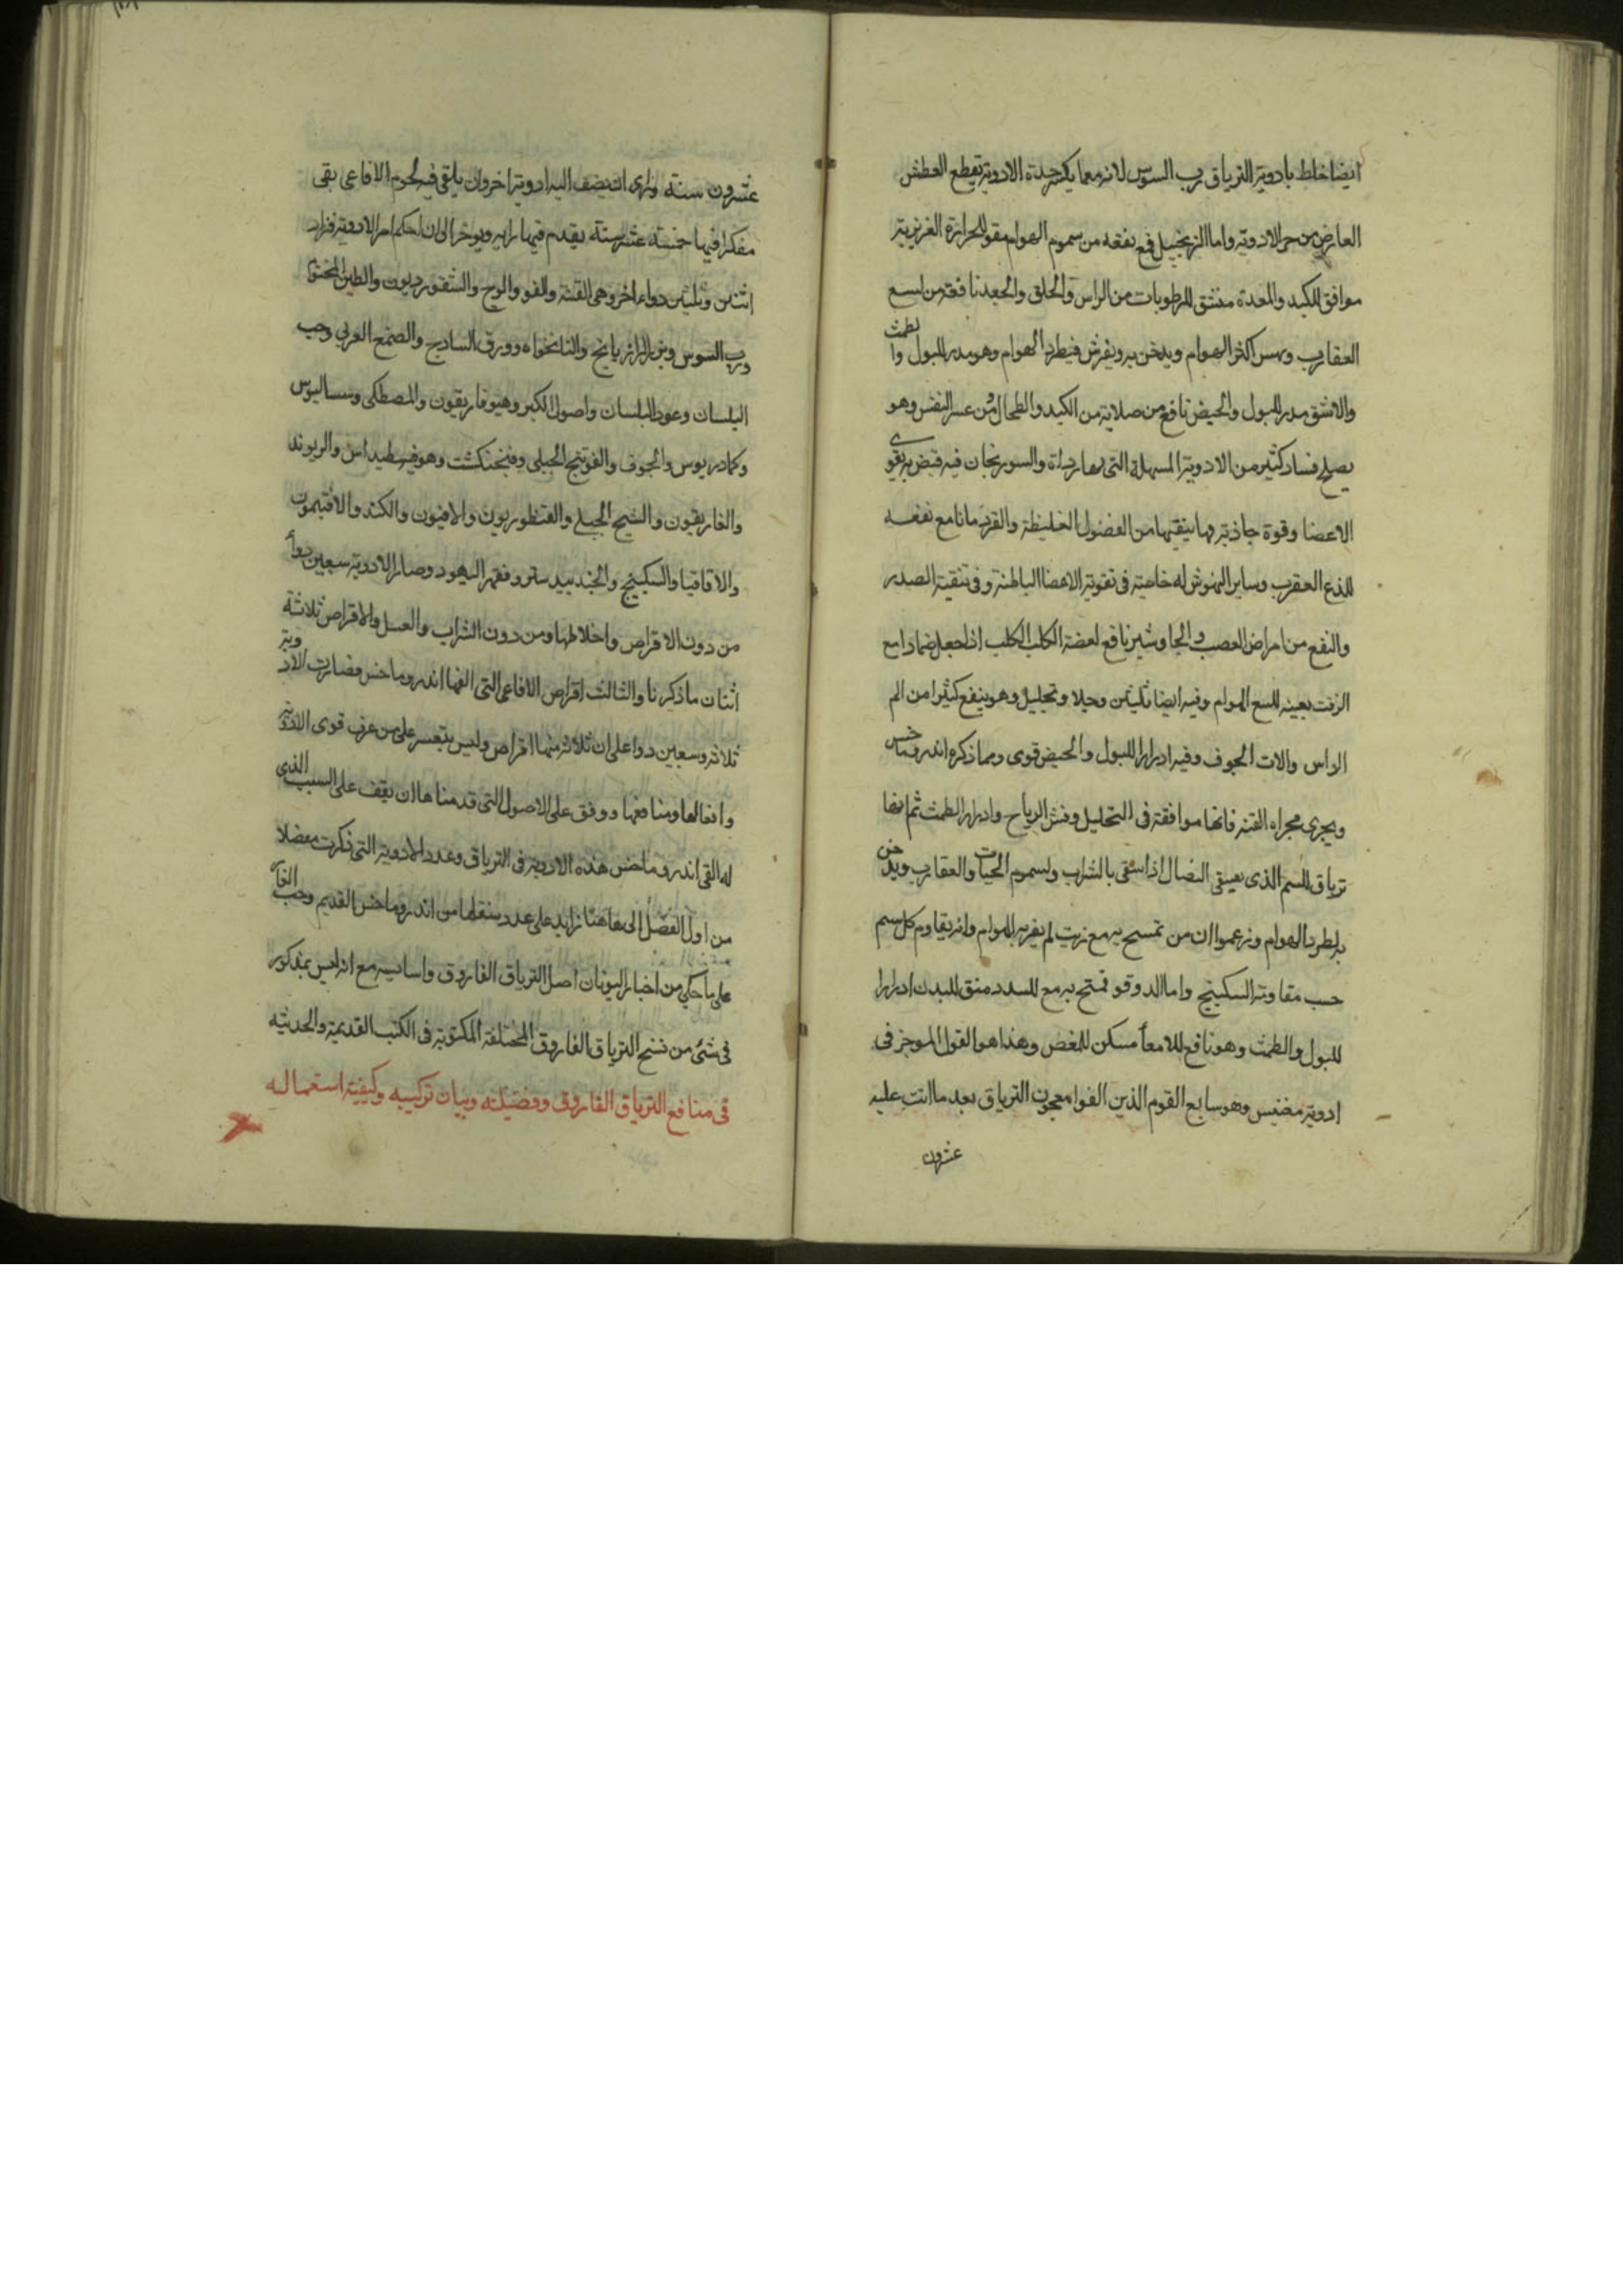 ايضا خلط بادوية الترياق رب السوس لانه مما يكسر حدة الادوية يقطع العطش
العارض من حر الادوية واما الزنجبيل فمع نفعه من سموم الهوام مقو للحرارة الغريزية
موافق للكبد والمعدة منشق للرطوبات من الراس والحلق والجعد نافعة من لسع
العقارب ونهس اكثر الهوام ويدخن به ويفرش فيطرد الهوام وهو مدر للبول والطمث
والاشق مدر للبول والحيض نافع من صلابة من الكبد والطحال ومن عسر النفس وهو
يصلح فساد كثير من الادوية المسهلة التى بها رداة والسورنجان فيه قبض به يقوى
الاعضا وقوة جاذبة بها ينقيها من الفضول الغليظة والقردمانا مع نفعه
للذع العقرب وساير النهوش له خاصية فى تقوية الاعضا الباطنة وفى تنقية الصدر
والنفع من امراض العصب والجاوشير نافع لعضة الكلب الكلب اذا جعل ضمادا مع
الزفت بعينه للسع الهوام وفيه ايضا تليين وجلا وتحليل وهو ينفع كثيرا من الم
الراس والات الجوف وفيه ادرار للبول والحيض قوى ومما ذكره اندروماخس
ويجرى مجراه القنه فانها موافقة فى التحليل وفش الرياح وادرار الطمث ثم انها
ترياق للسم الذى يسقى النصال اذا سقى بالشراب ولسموم الحيات والعقارب ويدخن
به لطرد الهوام وزعموا ان من تمسح به مع زيت لم يقربه الهوام وانه يقاوم كل سم
حسب مقاومته السكبينج واما الدوقو فمتح به مع للسدد منق للبدن ادرارا
للبول والطمث وهو نافع للامعآ مسكن للمغص وهذا هو القول الموجز فى
ادوية مغنيس وهو سابع القوم الذين الفوا معجون الترياق بعد ما اتت عليه
عشرون
عشرون سنة وراى ان يضف اليه ادوية اخر وان يلقى فيه لحوم الافاعى بقى
مفكرا فيها خمسة عشر سنة يقدم فيها رايه ويوخر الى ان احكم امر الادوية فزاد
اثنين وثلثين دواء اخر وهى القنة والفو والوج والشقورديون والطين المختوم
ورب السوس وبزر الرازيانج والنانخواه وورق السادج والصمغ العربى وحب
البلسان وعود البلسان واصول الكبر وهيوفاريقون والمصطكى وسساليوس
وكمادريوس والجوف والفوتنج الجبلى وفنجنكشت وهوفسطيداس والريوند
والغاريقون والشيح الجبلى والقنطوريون والافيون والكندر والافتيمون
والاقاقيا والسكبينج والجندبيدستر وقفر اليهود وصار الادوية سبعين دوآ
من دون الاقراص واخلاطها ومن دون الشراب والعسل والاقراص ثلاثة
اثنان ما ذكرنا والثالث اقراص الافاعى التى الفها اندروماخس فصارت الادوية
ثلاثة وسبعين دوا على ان ثلاثة منها اقراص وليس يتعسر على من عرف قوى الادوية
وافعالها ومنافعها ووفق على الاصول التى قدمناها ان يقف على السبب الذى
له القى اندروماخس هذه الادوية فى الترياق وعدد الادوية التى ذكرت مفصلا
من اول الفصل الى هاهنا زايد على عدد بنقلها من اندروماخس القديم وحب الغار
على ما حكى من اخبار اليونان اصل الترياق الفاروق واساسه مع انه ليس بمذكور
فى شئ من نسخ الترياق الفاروق المختلفة المكتوبة فى الكتب القديمة والحديثه
فى منافع الترياق الفاروق وفضيلته وبيان تركيبه وكيفية استعماله